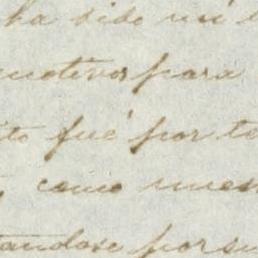 ha sido mi
motivos para
ito fué por te
como nues
tandose por su